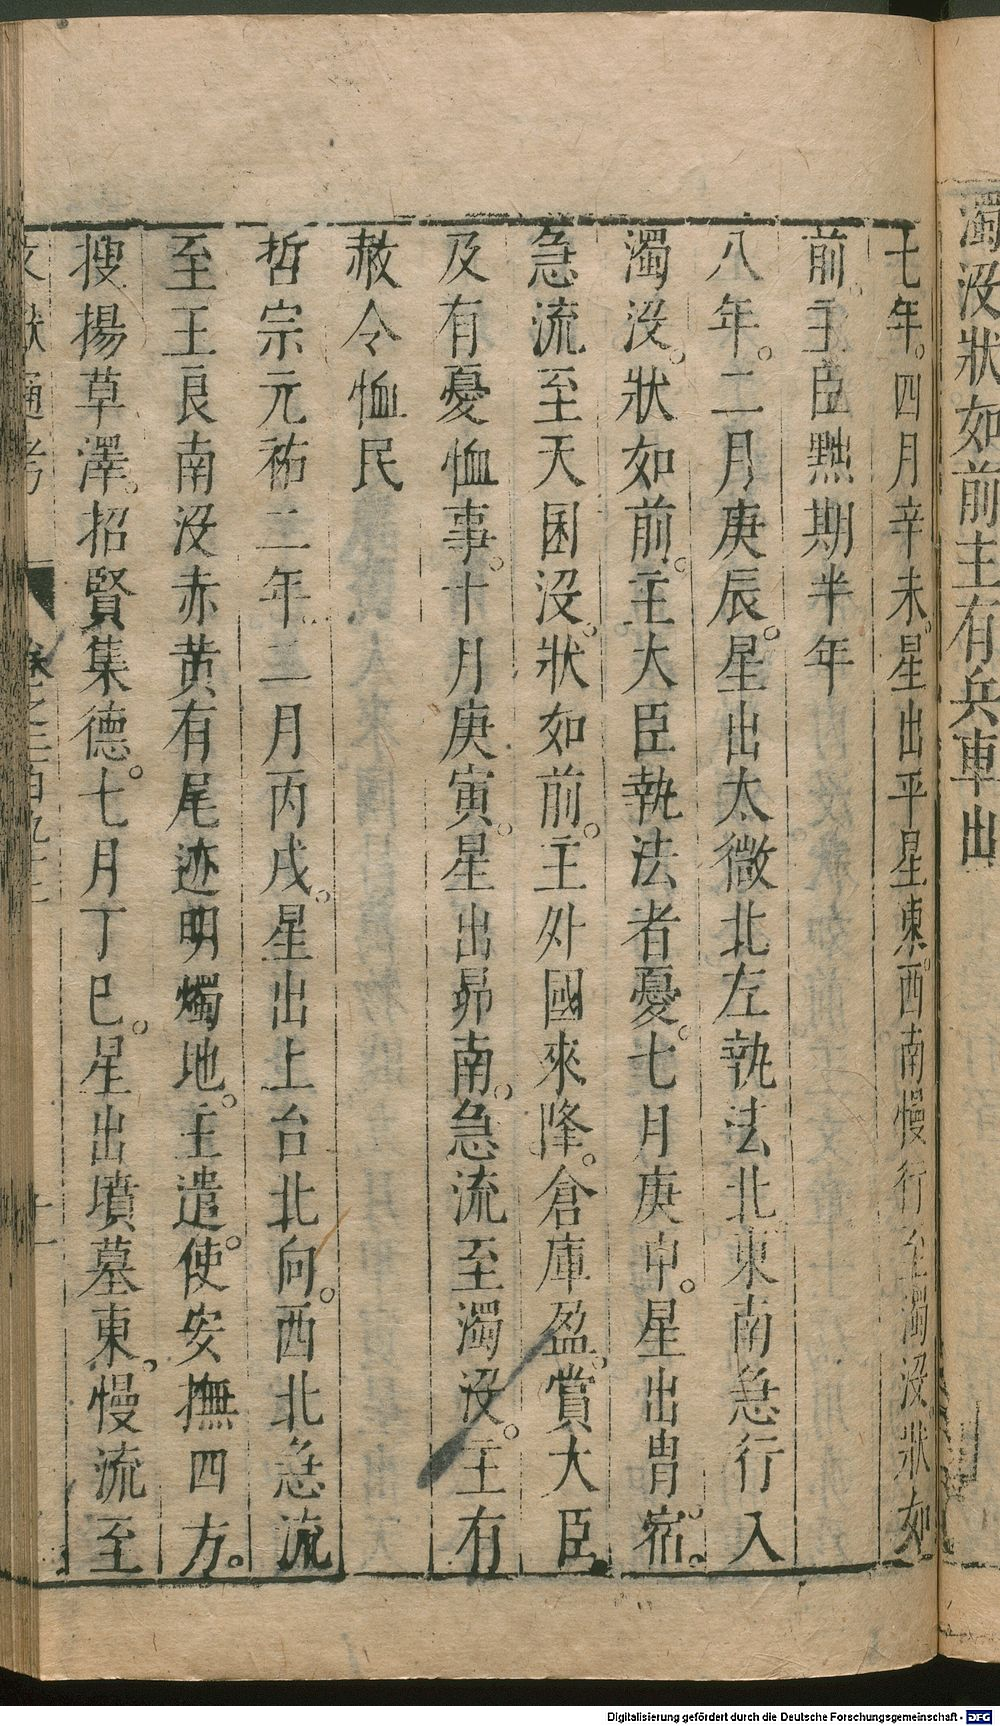 濁没狀如前主有兵車出
七年。四月辛未。星出平星東。西南慢行至濁没。狀如
前。主臣黜期半年
八年。二月庚辰。星出太微北左執法北東南急行入
濁没。狀如前。主大臣執法者憂。七月庚申。星出胃宿。
急流至天囷没。狀如前。主外國來降。倉庫盈。賞大臣
及有憂恤事。十月庚寅。星出昴南。急流至濁没。主有
赦令恤民
哲宗元祐二年。二月丙戌。星出上台北向。西北急流
至王良南没赤黄有尾迹明燭地。主遣使。安撫四方。
搜揚草澤。招賢集德。七月丁巳。星出墳墓東。慢流至
文獻通考
卷之二百九十二
十一
Digitalisierung gefördert durch die Deutsche Forschungsgemeinschaft - DFG